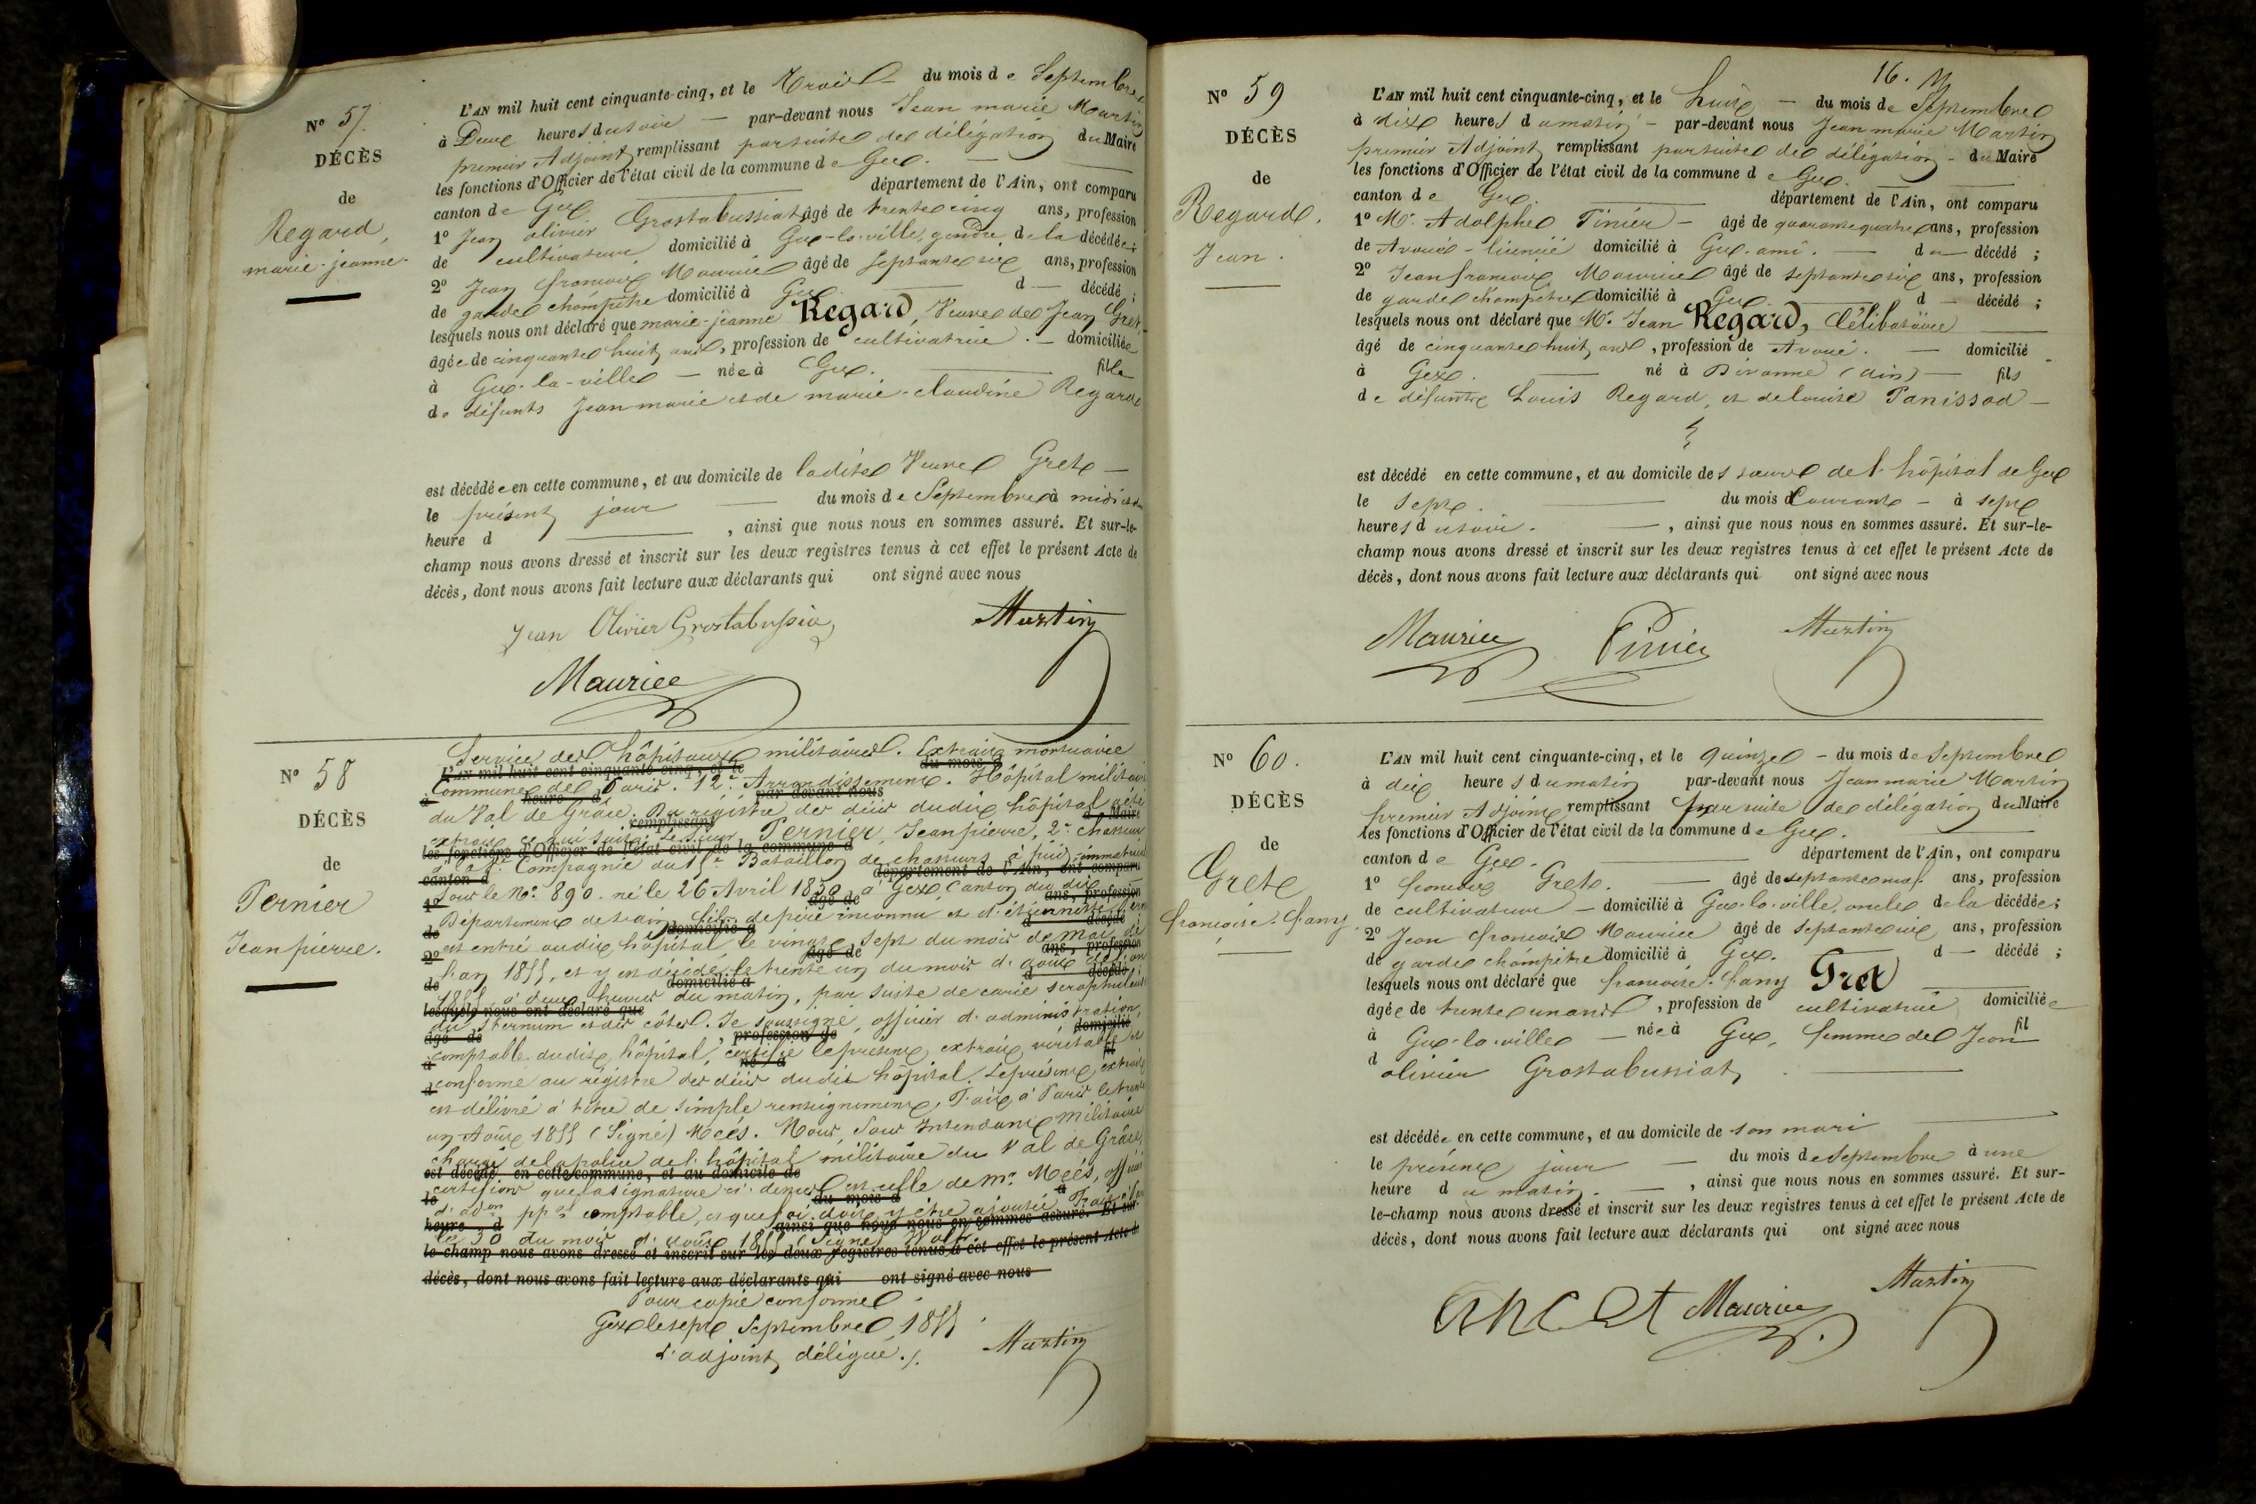 N° 57.
DÉCÈS
de
Regard,
marie-jeanne.
L'AN mil huit cent cinquante-cinq, et le Trois du mois de Septembre
à Deux heures du soir — par-devant nous Jean marie Martin
premier Adjoint remplissant par suite de délégation du Maire
les fonctions d'Officier de l'état civil de la commune de Gex. —
canton de Gex. — département de l'Ain, ont comparu
1° Jean olivier Grostabussiat, âgé de trente cinq ans, profession
de cultivateur domicilié à Gex-la-ville, gendre de la décédée;
2° Jean françois Maurice âgé de septante six ans, profession
de garde champêtre domicilié à Gex. — d — décédé;
lesquels nous ont déclaré que marie-jeanne Regard, Veuve de Jean Gret
âgée de cinquante huit ans, profession de cultivatrice. — domiciliée
à Gex-la-ville — née à Gex. — fille
de défunts Jean marie et de marie-claudine Regard
est décédée en cette commune, et au domicile de ladite Veuve Gret —
le présent jour — du mois de Septembre à midi
heure d — , ainsi que nous nous en sommes assuré. Et sur-le-
champ nous avons dressé et inscrit sur les deux registres tenus à cet effet le présent Acte de
décès, dont nous avons fait lecture aux déclarants qui ont signé avec nous
Jean Olivier Grostabussia Martin
Maurice
N° 58
DÉCÈS
de
Pernier
Jean pierre.
Service des hôpitaux militaires. Extrait mortuaire
L'AN mil huit cent cinquante-cinq, et le du mois d
Commune de Paris. 12e Arrondissement. Hôpital militaire
à heure d par-devant nous
du Val de Grâce. Du régistre des décès dudit hôpital a été
remplissant d Maire
extrait ce qui suit: Le Sieur Pernier, Jean pierre, 2e chasseur
les fonctions d'Officier de l'état civil de la commune d
Compagnie du Bataillon de chasseurs à pied, immatriculé
canton d département de l'Ain, ont comparu
sous le N°. 890. né le 26 Avril 1830 à Gex Canton dudit
1° âgé de ans, profession
Département de l'ain, fils de père inconnu et d'
de domicilié à d décédé;
est entré audit hôpital le vingt sept du mois de mai de
2° âgé de ans, profession
l'an 1855, et y est décédé le trente un du mois d'août de l'an
de domicilié à d décédé;
1855 à deux heures du matin, par suite de carie scrophuleuse
lesquels nous ont déclaré que
du sternum et des côtes. Je soussigné, officier d'administration,
âgé de profession de domicilié
comptable dudit hôpital, certifie le présent extrait véritable et
à né à fil
conforme au régistre des décès dudit hôpital. Le présent extrait
d
est délivré à titre de simple renseignement, Fait à Paris le trente
un Août 1855 (Signé) Mcés. Nous, Sous Intendant Militaire
chargé de la police de l'hôpital militaire du Val de Grâce,
est décédé en cette commune, et au domicile de
certifions que la signature ci-dessus est celle de Mr. Mcés, officier
le du mois d à
d'adon ppal comptable, et que foi doit y être ajoutée Fait à
heure d ainsi que nous nous en sommes assuré. Et sur-
le 30 du mois d'août 1855 (Signé)
le-champ nous avons dressé et inscrit sur les deux registres tenus à cet effet le présent Acte de
décès, dont nous avons fait lecture aux déclarants qui ont signé avec nous
Pour copie conforme.
Gex le sept Septembre 1855.
L'adjoint délégué. Martin
16.
N° 59
DÉCÈS
de
Regard.
Jean.
L'AN mil huit cent cinquante-cinq, et le huit — du mois de Septembre
à dix heures du matin — par-devant nous Jean marie Martin
premier Adjoint remplissant par suite de délégation — du Maire
les fonctions d'Officier de l'état civil de la commune de Gex. —
canton de Gex. — département de l'Ain, ont comparu
1° Mr. Adolphe Pinier — âgé de quarante quatre ans, profession
de Avoué-licencié domicilié à Gex. ami. — du — décédé;
2° Jean françois Maurice âgé de septante six ans, profession
de garde champêtre domicilié à Gex. — d — décédé;
lesquels nous ont déclaré que Mr. Jean Regard, Célibataire —
âgé de cinquante huit ans, profession de Avoué. — domicilié
à Gex. — né à Divonne (ain) — fils
de défunts Louis Regard, et de louise Panissod —
est décédé en cette commune, et au domicile des sœurs de l'hôpital de Gex
le sept. — du mois Courant — à sept
heures du soir. — , ainsi que nous nous en sommes assuré. Et sur-le-
champ nous avons dressé et inscrit sur les deux registres tenus à cet effet le présent Acte de
décès, dont nous avons fait lecture aux déclarants qui ont signé avec nous
Maurice Pinier Martin
N° 60.
DÉCÈS
de
Gret
françoise-fany
L'AN mil huit cent cinquante-cinq, et le quinze — du mois de Septembre
à dix heures du matin par-devant nous Jean marie Martin
premier Adjoint remplissant par suite de délégation du Maire
les fonctions d'Officier de l'état civil de la commune de Gex. —
canton de Gex. — département de l'Ain, ont comparu
1° françois Gret. — âgé de septante neuf ans, profession
de cultivateur — domicilié à Gex-la-ville, oncle de la décédée;
2° Jean françois Maurice âgé de septante six ans, profession
de garde champêtre domicilié à Gex. d — décédé;
lesquels nous ont déclaré que françoise-fany Gret —
âgée de trente un ans, profession de cultivatrice domiciliée
à Gex-la-ville — née à Gex, femme de Jean fil
d olivier Grostabussiat, —
est décédée en cette commune, et au domicile de son mari —
le présent jour — du mois de Septembre à une
heure du matin. — , ainsi que nous nous en sommes assuré. Et sur-
le-champ nous avons dressé et inscrit sur les deux registres tenus à cet effet le présent Acte de
décès, dont nous avons fait lecture aux déclarants qui ont signé avec nous
Maurice Martin